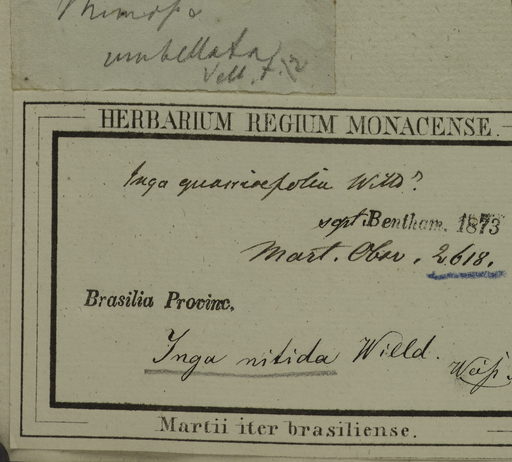 Mimosa
umbellata
Vell. f. 12
HERBARIUM REGIUM MONACENSE.
Inga quassiaefolia Willd?
sgpt. Bentham. 1873
Mart. Obs. 2618.
Brasilia Provinc.
Inga nitida Willd.
Martii iter brasiliense.